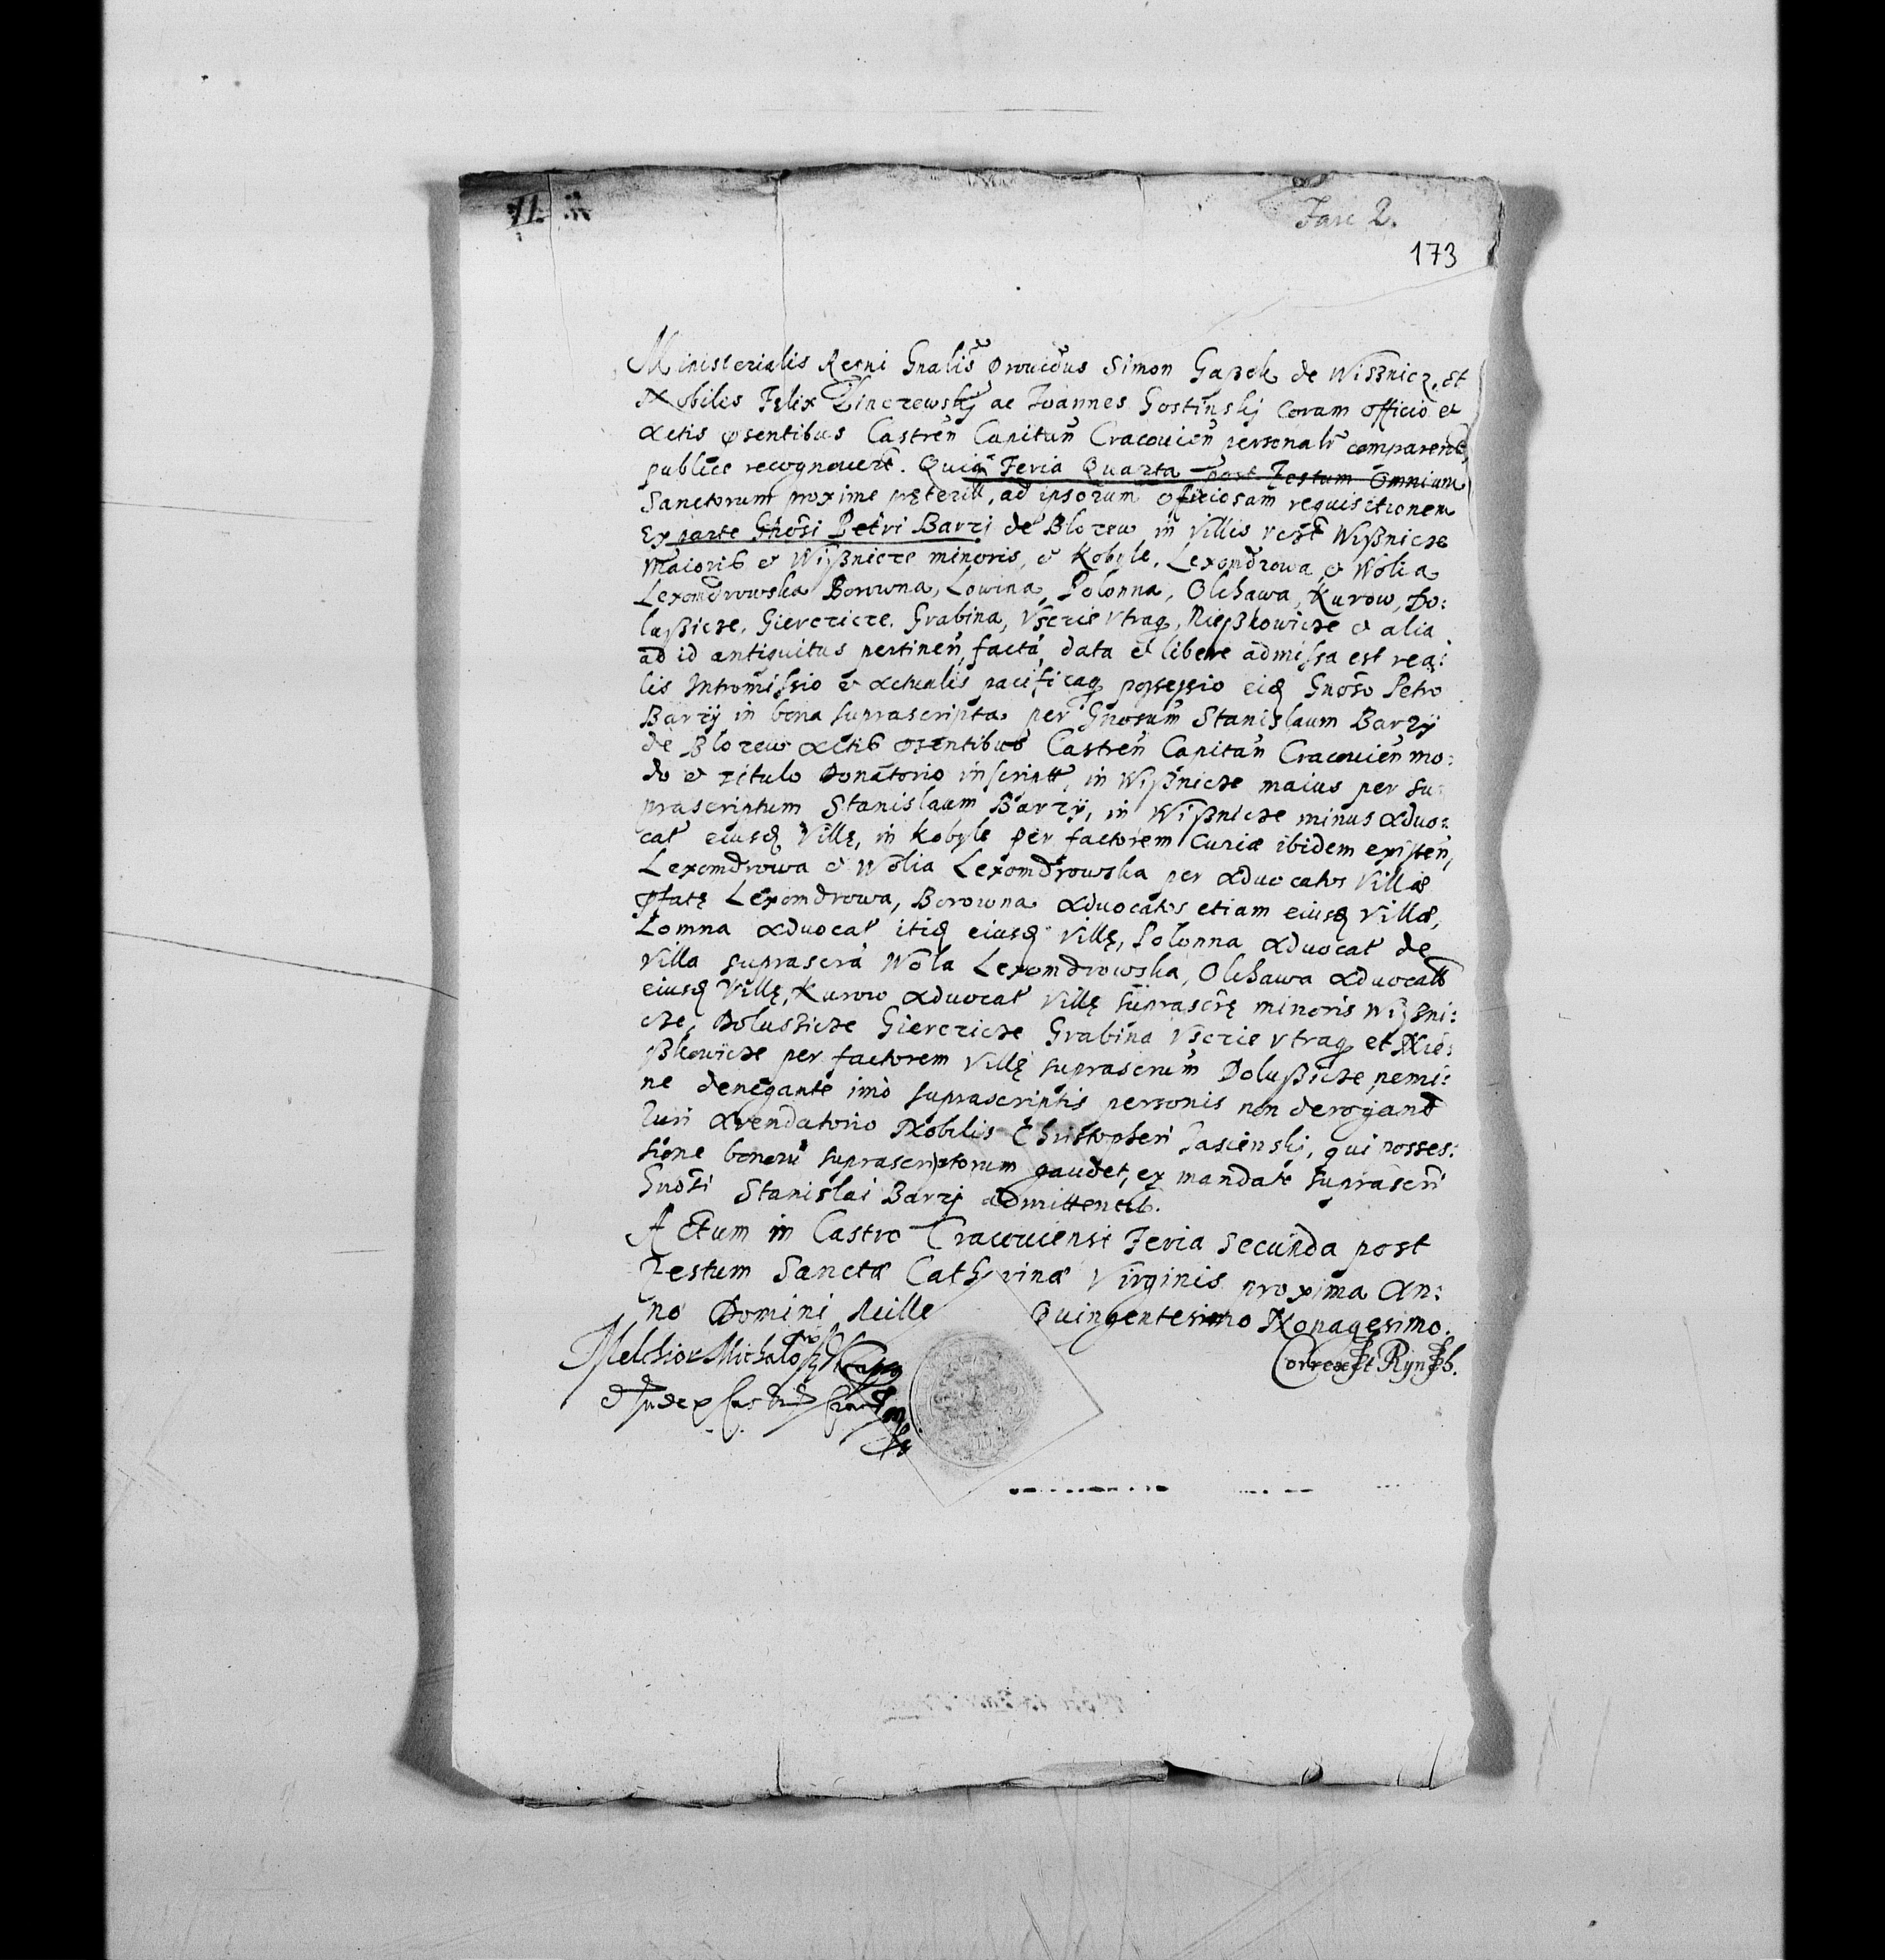 Fasc 2.
173
Ministerialis Regni Gnalis Prouidus Simon Gaszek de Wisznicz, et
Nobiles Felix Zinczewskj ac Joannes Gostinskj Coram officio et
Actis psentibus Castren Capitan Cracouien personalr comparent,
publice recognouert. Quia Feria Quarta post Festum Omnium
Sanctorum proxime pręterit, ad ipsorum officiosam requisitionem
Ex parte Gnosi Petri Barzi de Blozew in Villis vczt Wißnicze
Maioris et Wißnicze minoris, et Kobyle, Lexomdrowa, et Wolia
Lexomdrowska Borowna, Lowina, Polonna, Olchawa, Kurow, Do:
lußicze, Gierczicze, Grabina, Vsczie vtraq, Nießkowicze et alia
ad id antiquitus pertinen, facta, data et libere admissa est rea:
lis Intromissio et Actualis pacificaq possessio eid Gnoso Petro
Barzÿ in bona suprascripta per Gnosum Stanislaum Barzÿ
de Blozew Actis psentibus Castren Capitan Cracouien mo:
do et titulo Donatorio inscript, in Wißnicze maius per su:
prascriptum Stanislaum Barzÿ, in Wißnicze minus Aduo:
cat eiusd Villę, in Kobyle per factorem Curiæ ibidem existen,
Lexomdrowa et Wolia Lexomdrowska per Aduocatos Villæ
pfatę Lexomdrowa, Borowna Aduocatos etiam eiusd Villæ,
Lomna Aduocat itid eiusd Villę, Polonna Aduocat de
Villa suprascra Wola Lexomdrowska, Olchawa Aduocatt
eiusd Villę, Kurow Aduocat Villę suprascrę minoris Wißni:
cze, Dolussicze Gierczicze Grabina Vsczie vtraq et Nie:
ßkowicze per factorem Villę suprascrum Dolußicze, nemi:
ne denegante imò suprascriptis personis non derogand
Iuri Arendatorio Nobilis Christopheri Jasienskj, qui posses:
sione bonoru suprascriptorum gaudet, ex mandato suprascri
Gnosi Stanislai Barzj admittentib.
Actum in Castro Cracouiensi Feria Secunda post
Festum Sanctæ Catherinæ Virginis proxima An:
no Domini Mille Quingentesimo Nonagęsimo.
Melchior
Judex
Correxit Rynsb.